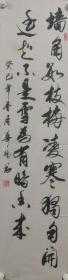 墙角数枝梅凌寒独自开
遥知不是雪为有暗香来
癸巳年春月